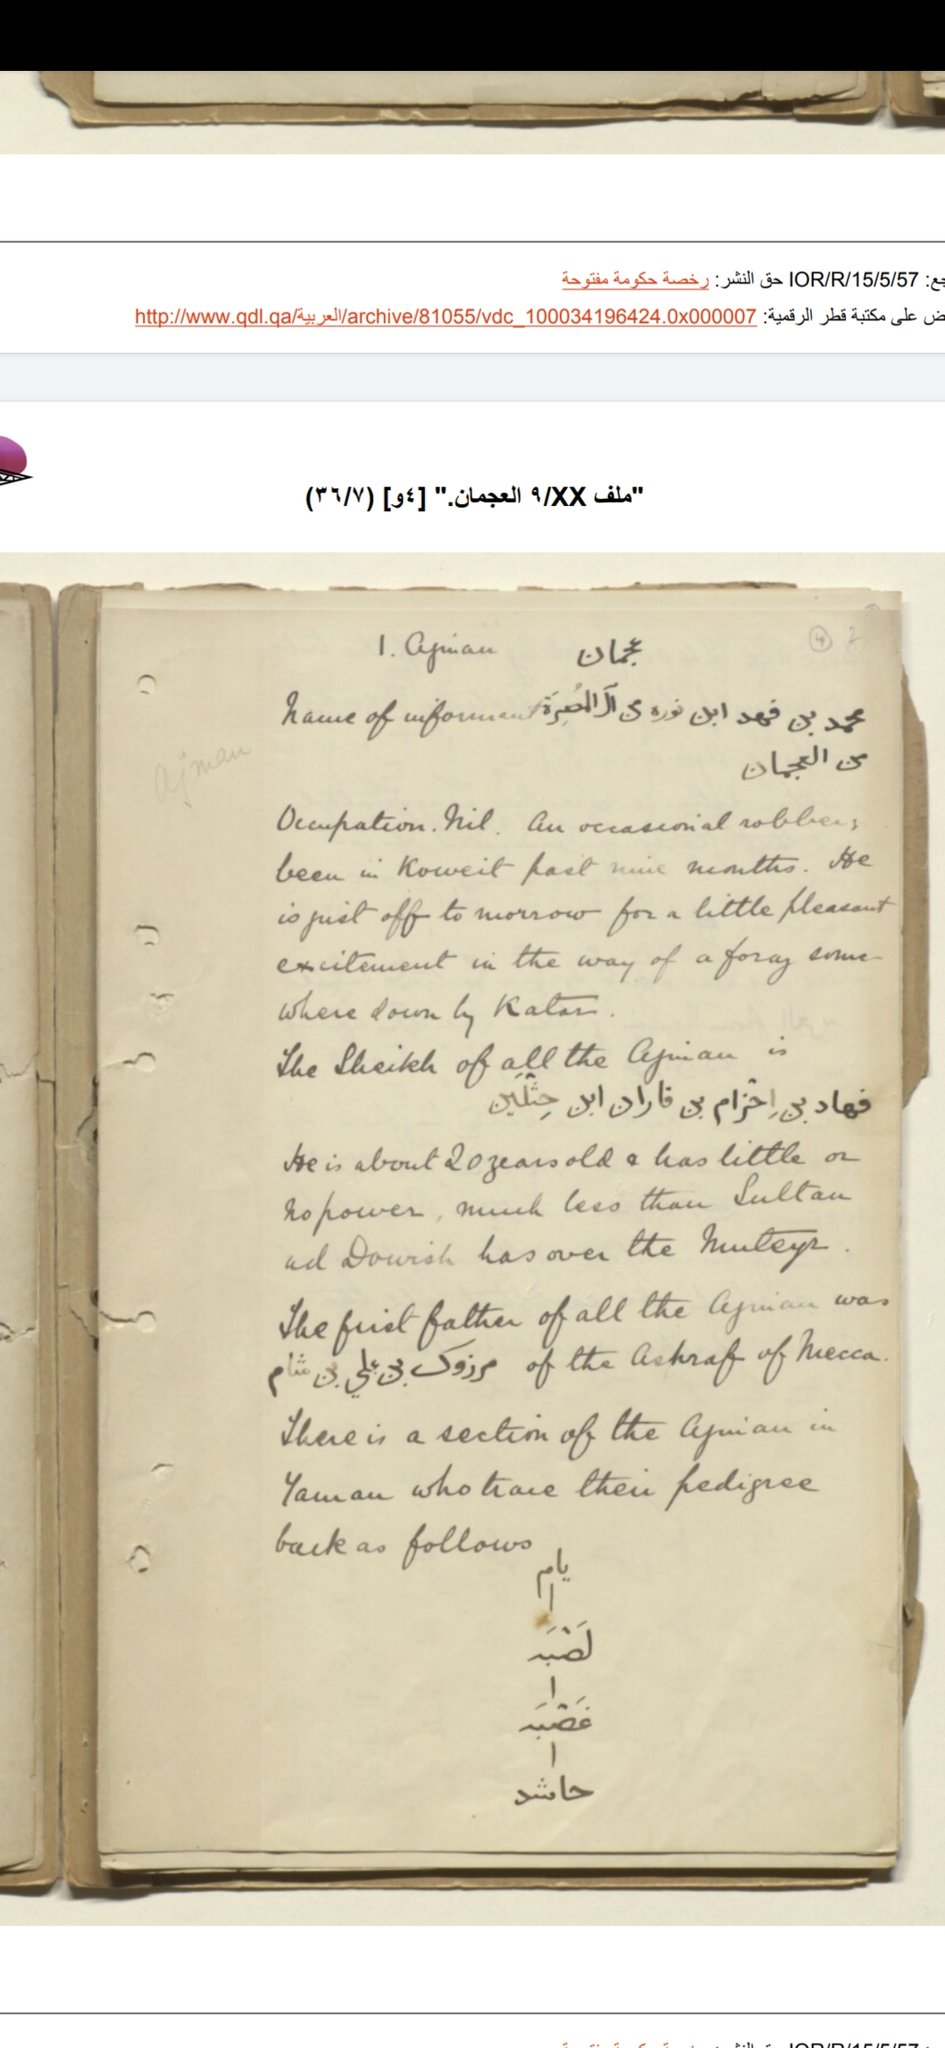 جع: IOR/R/15/5/57 حق النشر: رخصة حكومة مفتوحة
ض على مكتبة قطر الرقمية: http://www.qdl.qa/العربية/archive/81055/vdc_100034196424.0x000007
"ملف ٩/XX العجمان." [٤و] (٣٦/٧)
4 2
1. Ajman عجمان
Name of informant محمد بن فهد ابن نوره من آل
من العجمان
Ajman
Occupation. Nil. An occasional robber;
been in Koweit past nine months. He
is just off to morrow for a little pleasant
excitement in the way of a foray some-
where down by Katar.
The Sheikh of all the Ajman is
فهاد بن اِحْزام بن فاران ابن حِثْلَين
He is about 20 years old & has little or
no power, much less than Sultan
ad Dowish has over the Muteyr.
The first father of all the Ajman was
مرزوک بن علي بن شام of the Ashraf of Mecca.
There is a section of the Ajman in
Yaman who trace their pedigree
back as follows
يام
لَصْبَه
غَصْبَه
حاشد